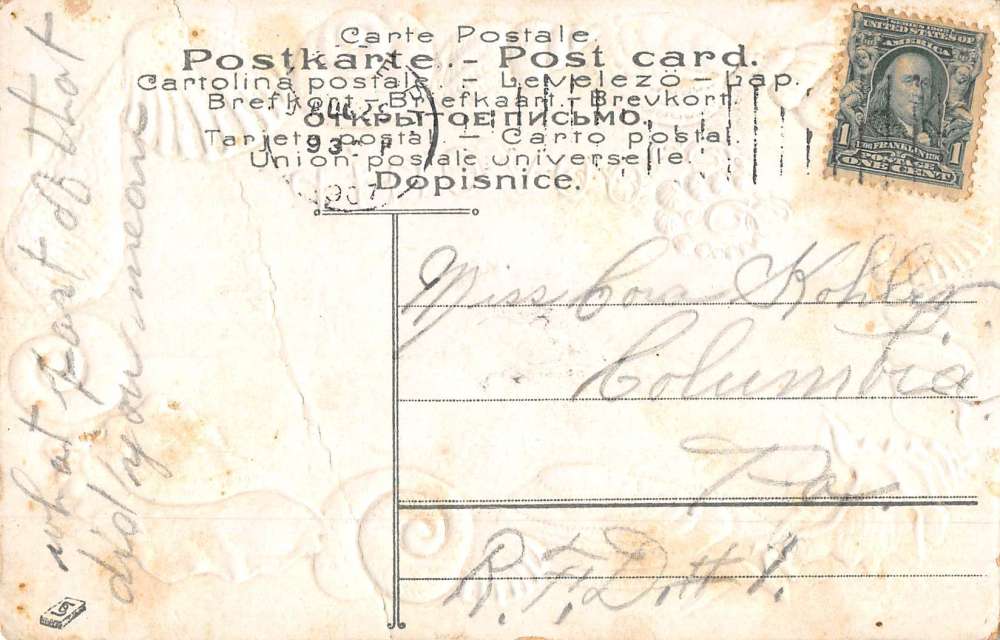 Carte Postale.
Postkarte. - Post card.
Cartolina postale. - Levelező - Lap.
Brefkort - Briefkaart - Brevkort
ОТКРЫТОЕ ПИСЬМО.
Tarjeta postal - Carto postal.
Union postale universelle.
Dopisnice.
9 30 P
1907
SERIES 1902
UNITED STATES OF
AMERICA
1 FRANKLIN 1
POSTAGE
ONE CENT
what part of that
did you mean
Miss Cora Kohler
Columbia
Pa.
R. F. D # 1.